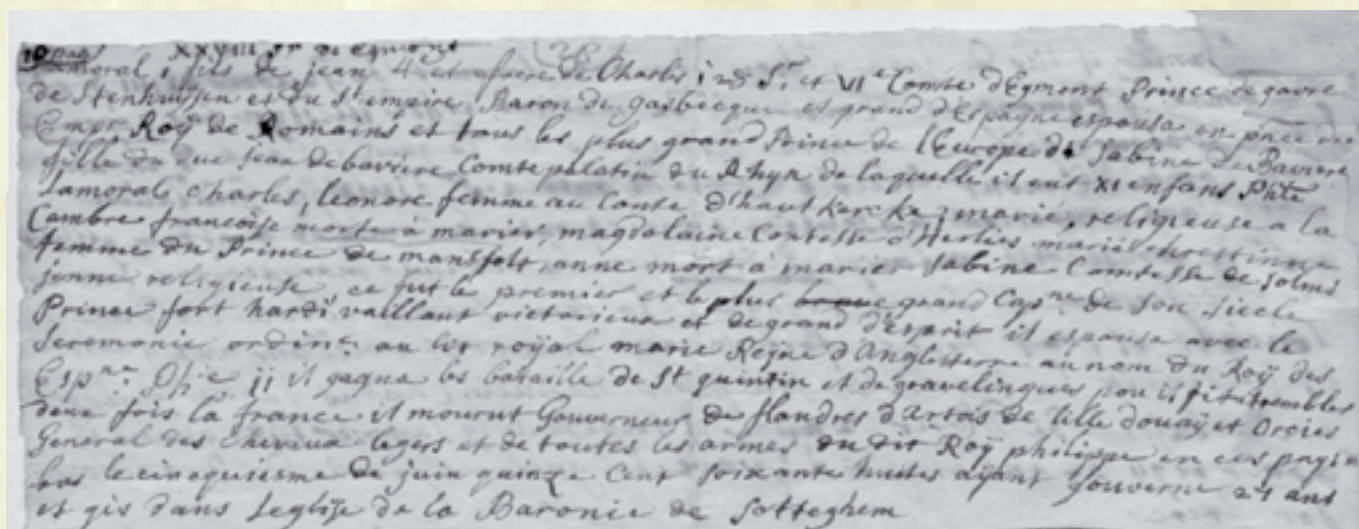 XXVIII Sr de Egmont
Lamoral i fils de jean 4 et frere de Charles i 28 Sr et VIe Comte d'Egmont Prince de gavre
de Stenhuissen et du St empire Baron de gasbecque et grand d'Espagne espousa en
Empr Roÿ de Romains et tous les plus grand Prince de l'Europe de Sabine de Baviere
fille du duc jean de baviere Comte palatin du Rhyn de laquelle il eut XI enfans Phle
Lamoral, Charles, leonore femme au Conte d'hautkercke, marie, religieuse a la
Cambre francoise morte à marier, magdelaine Contesse d'Herlies mariè chrestinne
femme du Prince de mansfelt, anne mort à marier Sabine Comtesse de Solms
jenne religieuse, ce fut le premier et le plus brave grand Capne de son siecle
Prince fort hardi vaillant victorieux et de grand d'esprit il espousa avec le
Seremonie ordinre au lit roÿal marie Reÿne d'Anglesterre au nom du Roÿ des
Espne Phe ii il gagna les bataille de St quintin et de gravelingues il fit trembler
deux fois la france il mourut Gouverneur de flandres d'Artois de lille douaÿ et Orcies
General des chevaux legers et de toutes les armes du dit Roÿ philippe en ces paÿi=
bas le cincquiesme de juin quinze Cent soixante huites aÿant Gouverne 24 ans
et gis dans Leglise de la Baronie de Sotteghem